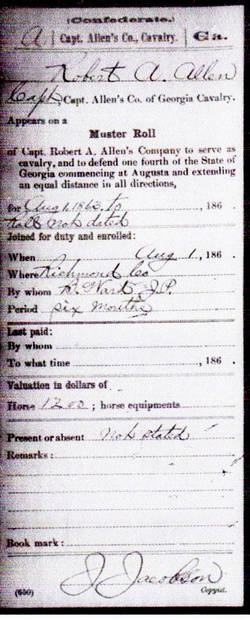 (Confederate.)
A | Capt. Allen's Co., Cavalry. | Ga.
Robert A. Allen
Capt, Capt. Allen's Co. of Georgia Cavalry.
Appears on a
Muster Roll
of Capt. Robert A. Allen's Company to serve as
cavalry, and to defend one fourth of the State of
Georgia commencing at Augusta and extending
an equal distance in all directions,
for Aug 1, 1863 to , 186 .
date not stated
Joined for duty and enrolled:
When Aug 1, 186 .
Where Richmond Co
By whom West J.P.
Period six months
Last paid:
By whom
To what time , 186 .
Valuation in dollars of
Horse 1200 ; horse equipments
Present or absent Not stated
Remarks:
Book mark:
J Jacobson
(650) Copyist.